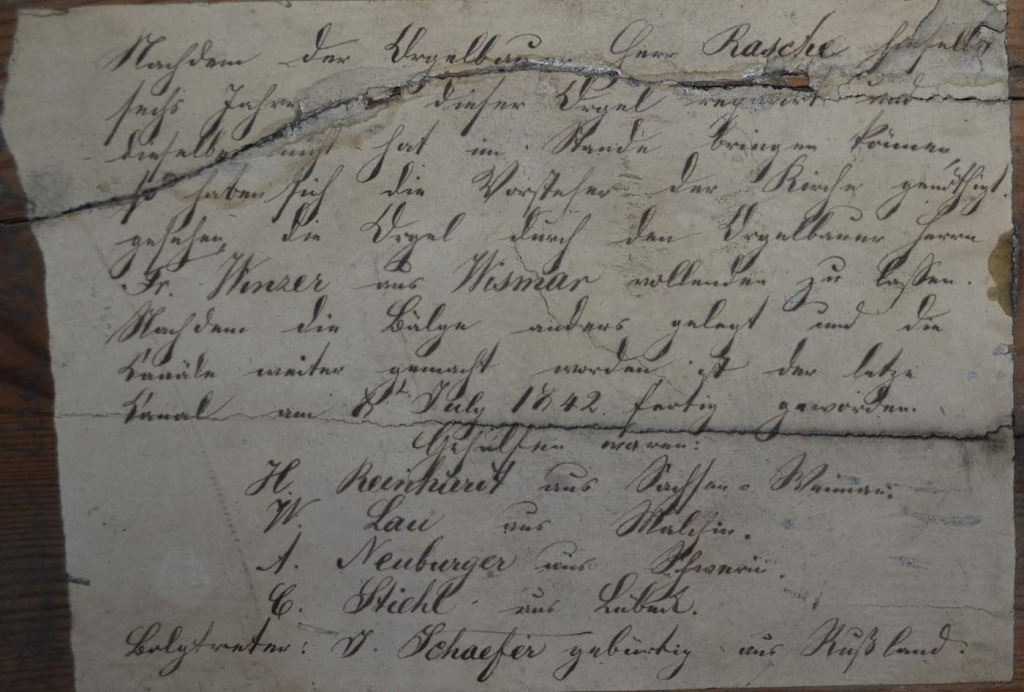 Nachdem der Orgelbauer Herr Rasche hieselbst
sechs Jahre dieser Orgel reparirt und
dieselbe nicht hat im Stande bringen können,
so haben sich die Vorsteher der Kirche genöthigt
gesehen, die Orgel durch den Orgelbauer Herrn
Fr. Winzer aus Wismar vollenden zu lassen.
Nachdem die Bälge anders gelegt und die
Canäle weiter gemacht worden ist der letze
Canal am 8t July 1842 fertig geworden.
Gehülfen waren:
H. Reinhardt aus Sachsen-Weimar.
W. Lau aus Malchin.
A. Neuburger aus Schwerin.
C. Stiehl aus Lübeck.
Balgtreter: J. Schaefer gebürtig aus Rußland.